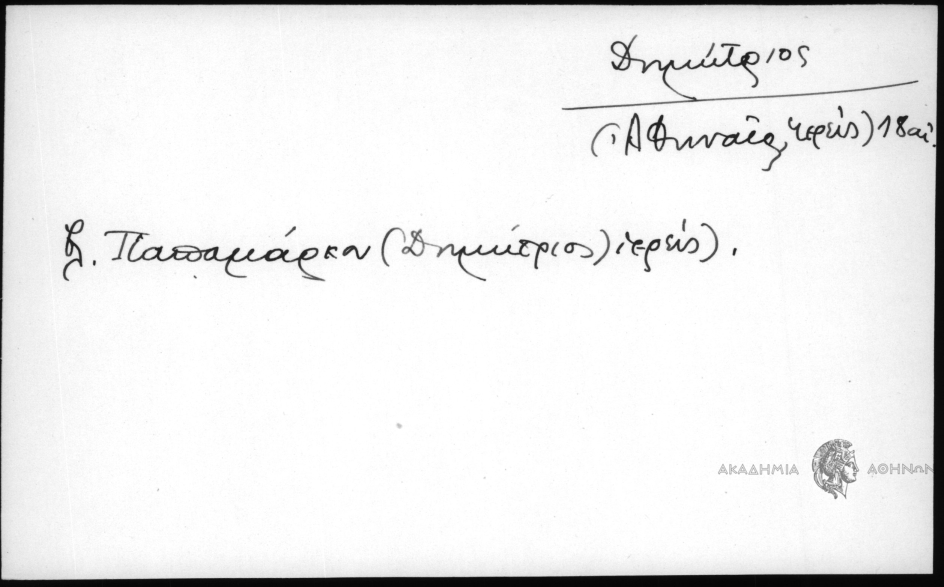 Δημήτριος
(Ἀθηναῖος, ἱερεύς) 18 αἰ.
βλ. Παπαμάρκου (Δημήτριος) ἱερεύς).
ΑΚΑΔΗΜΙΑ ΑΘΗΝΩΝ